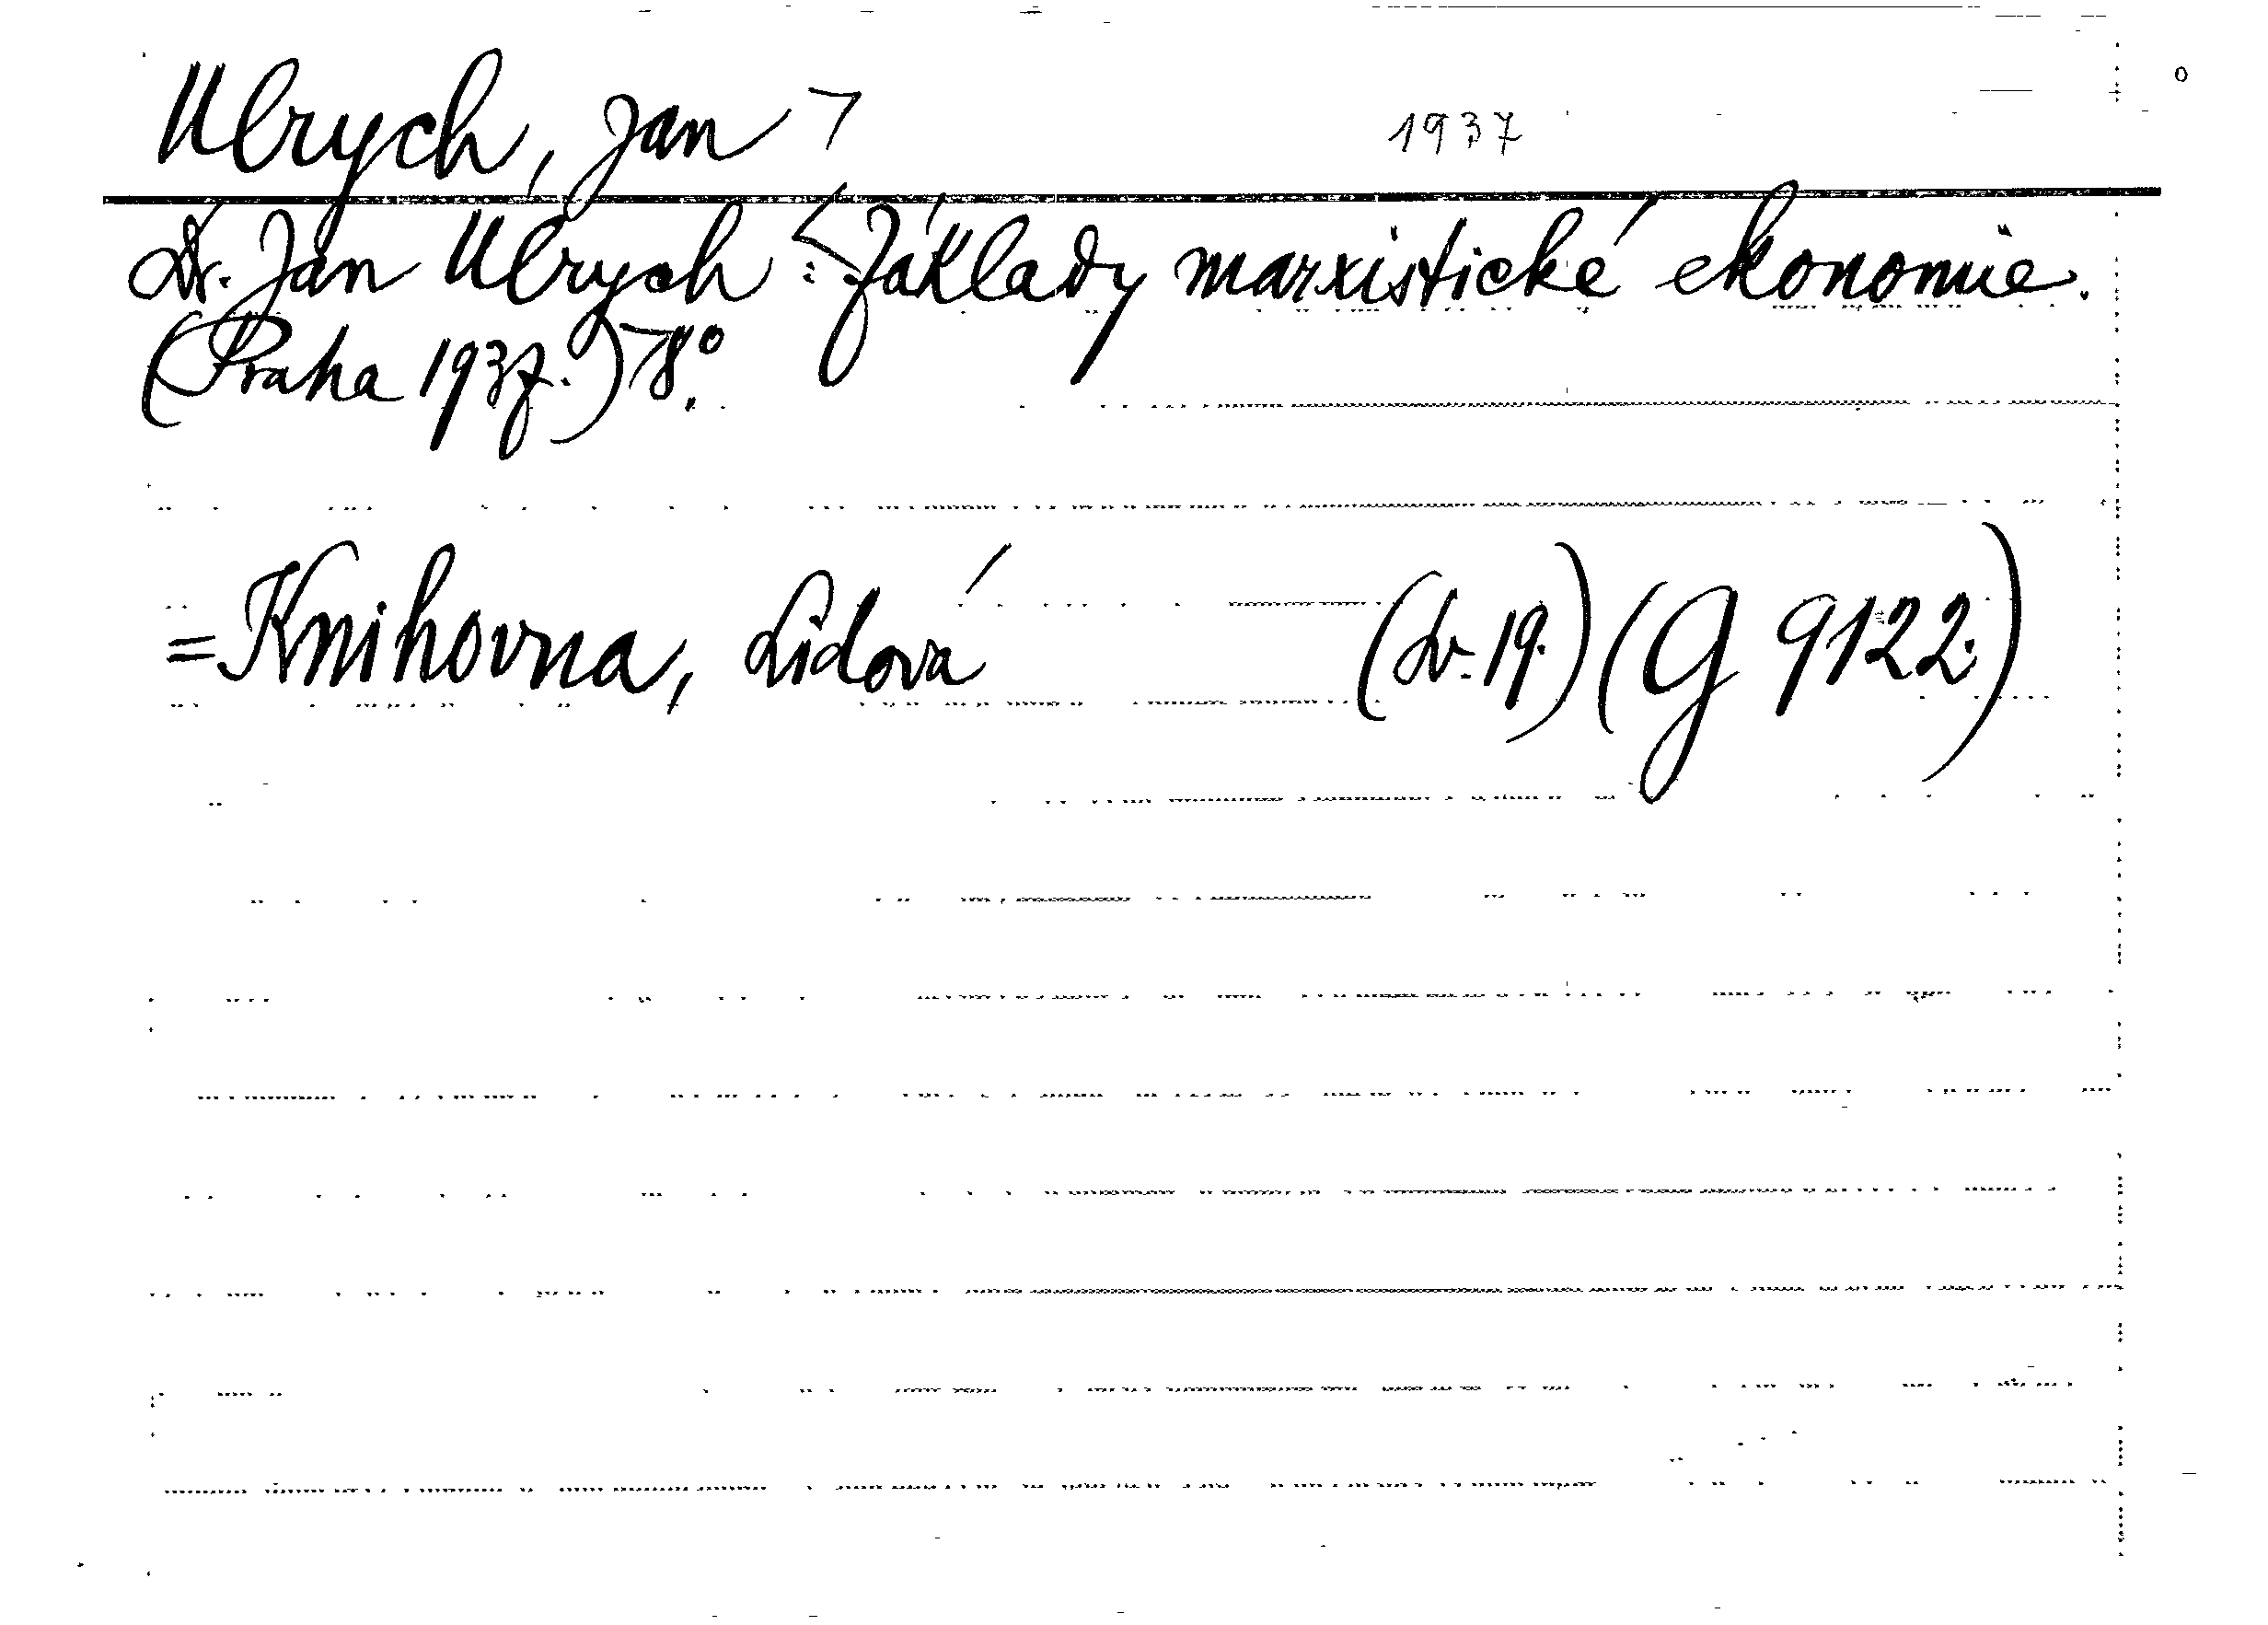 Ulrych, Jan 1937
Dr. Jan Ulrych: Základy marxistické ekonomie.
(Praha 1937.) 8°.
= Knihovna, Lidová (Sv. 19.) (G 9122.)